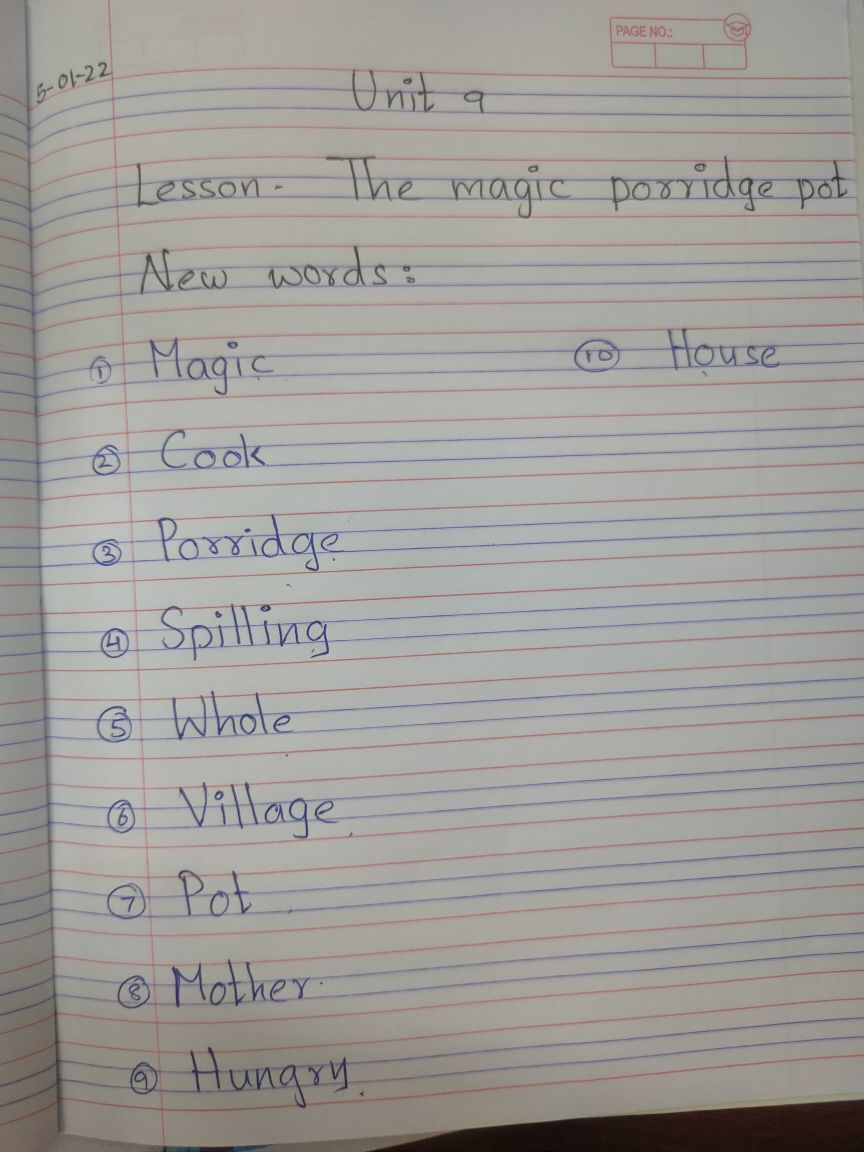 PAGE NO.:
5-01-22
Unit 9
Lesson- The magic porridge pot
New words:
① Magic
② Cook
③ Porridge
④ Spilling
⑤ Whole
⑥ Village
⑦ Pot
⑧ Mother
⑨ Hungry
⑩ House